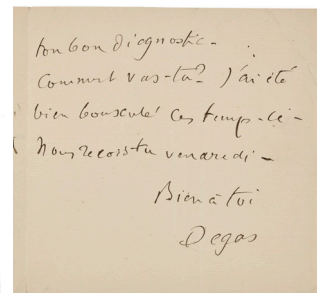 ton bon diagnostic -
Comment vas-tu? J'ai été
bien bousculé ces temps-ci -
Nous reçois tu vendredi -
Bien à toi
Degas